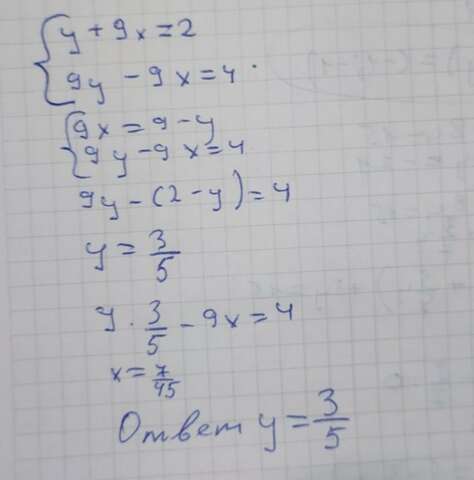 y + 9x = 2
9y - 9x = 4.
9x = 9 - y
9y - 9x = 4
9y - (2 - y) = 4
y = 3/5
y · 3/5 - 9x = 4
x = 7/45
Ответ y = 3/5